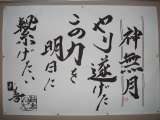 神無月
やり遂げた
この力を
明日に
繋げたい